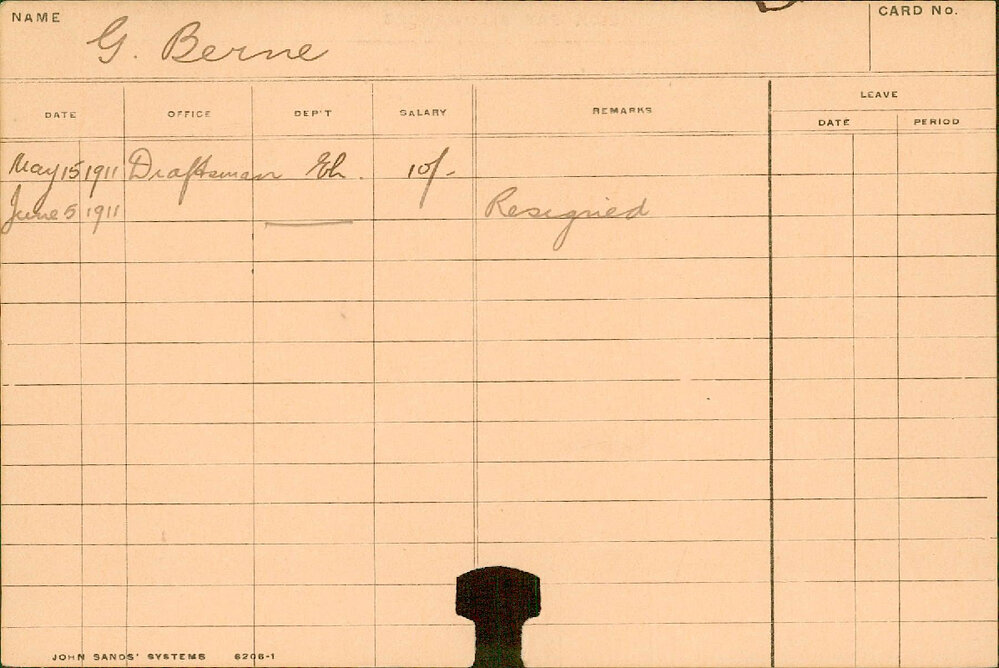 NAME G. Berne CARD No.
LEAVE
DATE OFFICE DEP'T SALARY REMARKS DATE PERIOD
May 15 1911 Draftsman Eh. 10/-
June 5 1911 Resigned
JOHN SANDS' SYSTEMS 6206-1